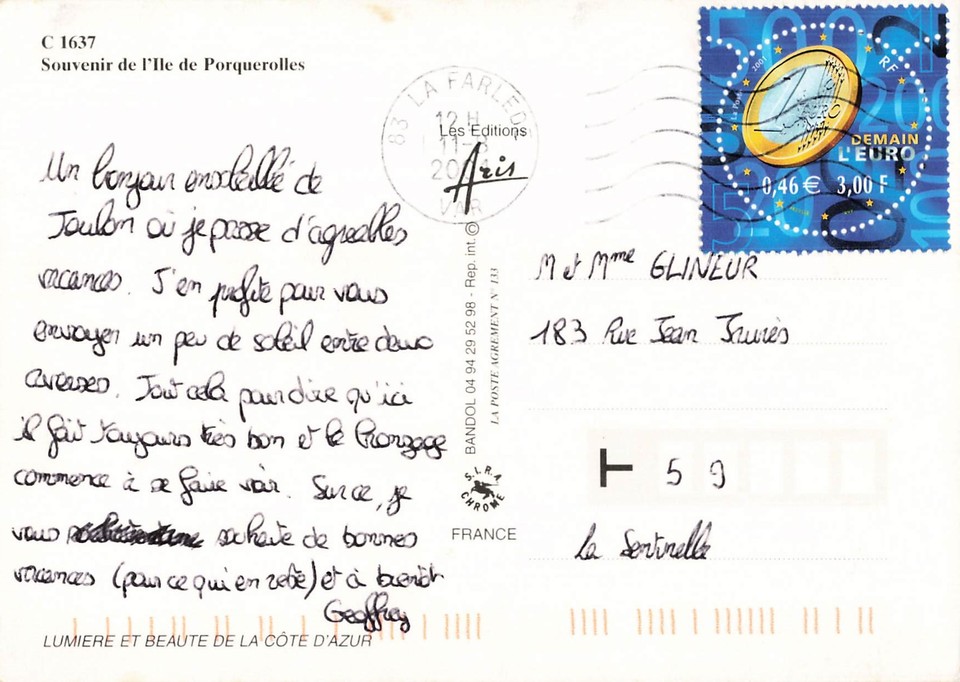 C 1637
Souvenir de l'Ile de Porquerolles
Un bonjour ensoleillé de
Toulon où je passe d'agreables
vacances. J'en profite pour vous
envoyer un peu de soleil entre deux
averses. Tout cela pour dire qu'ici
il fait toujours très bon et le bronzage
commence à se faire voir. Sur ce, je
vous souhaite de bonnes
vacances (pour ce qui en reste) et à bientôt
Geoffrey
LUMIERE ET BEAUTE DE LA CÔTE D'AZUR
83 LA FARLEDE
12 H
11-
VAR
Les Editions
Aris
BANDOL 04 94 29 52 98 - Rep. int. ©
LA POSTE AGREMENT N° 133
S.I.R.A
CHROME
FRANCE
La Poste 2001
RF
DEMAIN
L'EURO
0,46 € 3,00 F
M et Mme GLINEUR
183 Rue Jean Jaurès
T 59
La Sentinelle